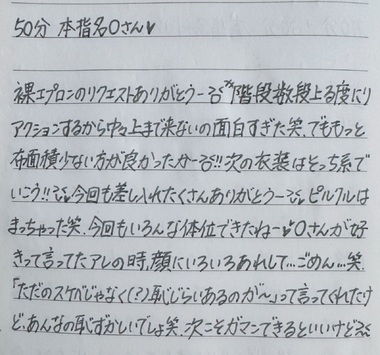 50分 本指名Oさん♥
裸エプロンのリクエストありがとうー 階段数段上る度にリ
アクションするから中々上まで来ないの面白すぎた笑、でももっと
布面積少ない方が良かったかー!!次の衣装はそっち系で
いこう!!今回も差し入れたくさんありがとうー ピルクルは
まっちゃった笑、今回もいろんな体位できたねー♥Oさんが好
きって言ってたアレの時、顔にいろいろあれして...ごめん...笑、
「ただのスケベじゃなく(?)恥じらいあるのが〜」って言ってくれたけ
ど、あんなの恥ずかしいでしょ笑、次こそガマンできるといいけど